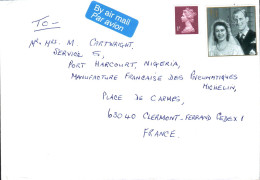 By air mail
Par avion
TO —
Mr. Mrs M. CARTWRIGHT,
SERVICE
PORT HARCOURT, NIGERIA,
MANUFACTURE FRANCAISE DES PNEUMATIQUES
MICHELIN,
PLACE DE CARMES,
63040 CLERMONT-FERRAND CEDEX 1
FRANCE.